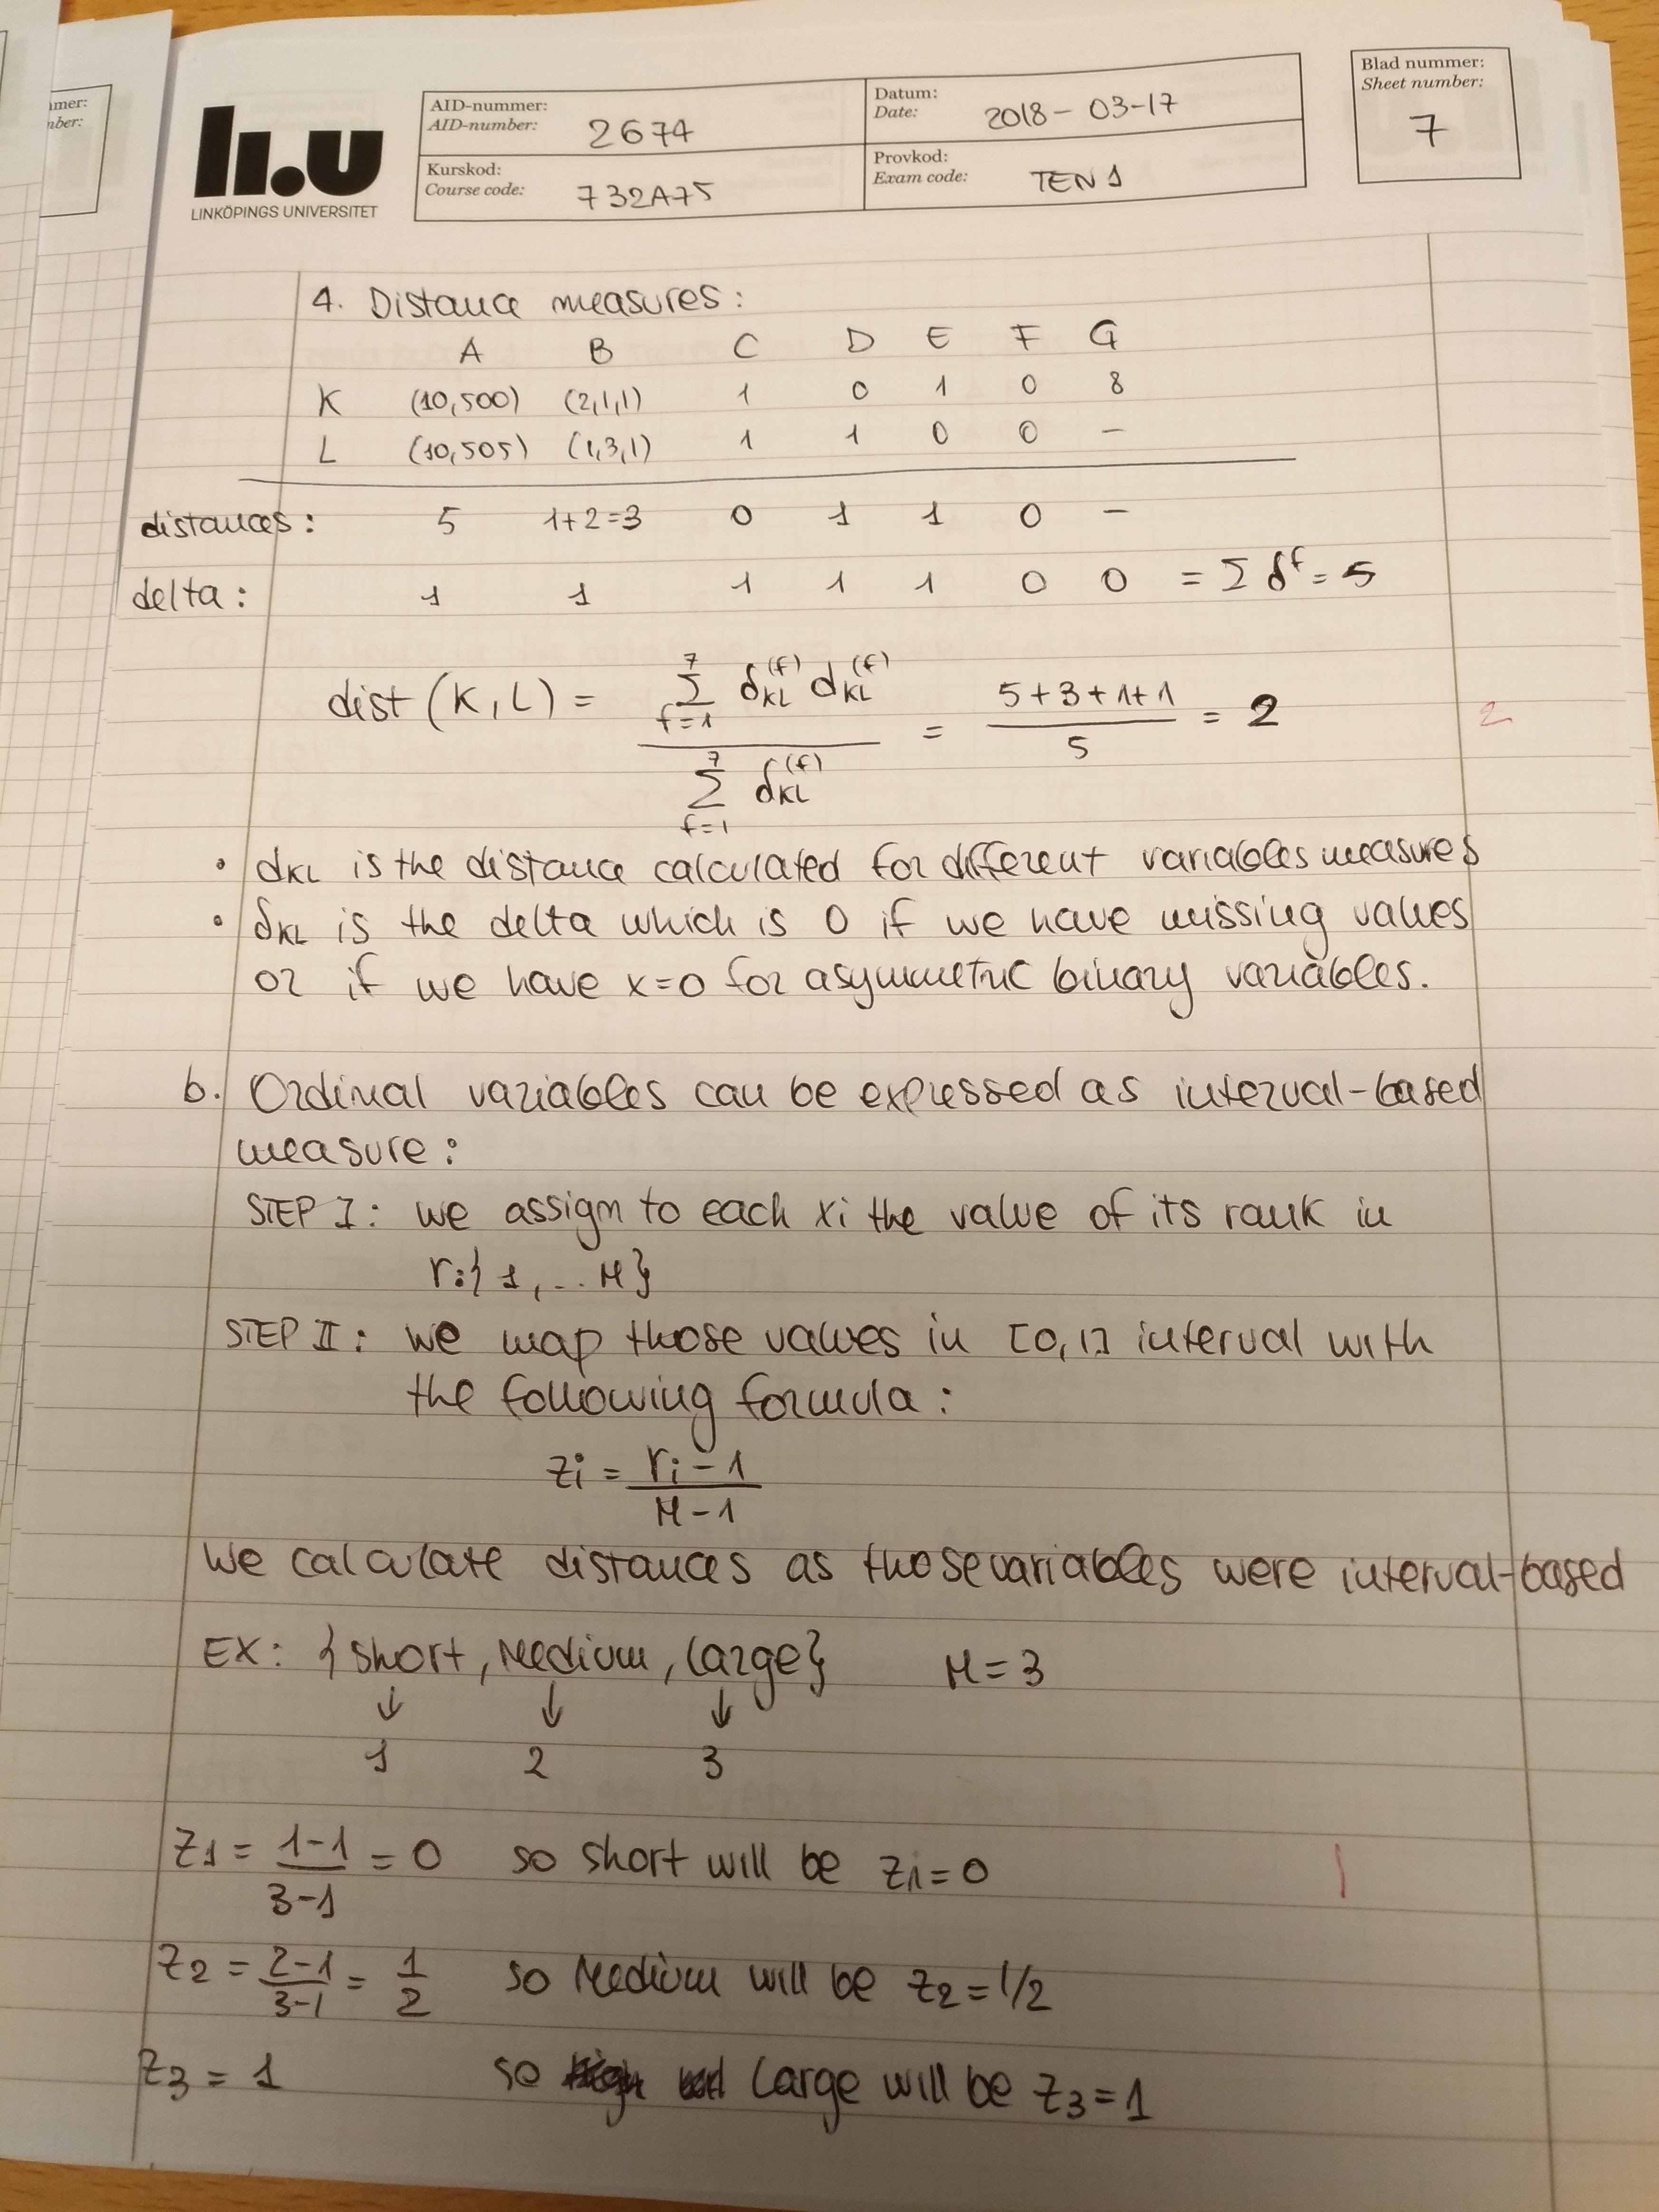 mer:
nber:
LiU
LINKÖPINGS UNIVERSITET
AID-nummer:
AID-number: 2674
Datum:
Date: 2018-03-17
Kurskod:
Course code: 732A75
Provkod:
Exam code: TEN1
Blad nummer:
Sheet number:
7
4. Distance measures:
A B C D E F G
K (10,500) (2,1,1) 1 0 1 0 8
L (10,505) (1,3,1) 1 1 0 0 -
distances: 5 1+2=3 0 1 1 0 -
delta: 1 1 1 1 1 0 0 = Σ δ^f = 5
dist (K, L) = Σ_{f=1}^{7} δ_{KL}^{(f)} d_{KL}^{(f)} / Σ_{f=1}^{7} δ_{KL}^{(f)} = (5+3+1+1) / 5 = 2
2
• dKL is the distance calculated for different variables measures
• δKL is the delta which is 0 if we have missing values
or if we have x=0 for asymmetric binary variables.
b. Ordinal variables can be expressed as interval-based
measure:
STEP I: we assign to each xi the value of its rank in
r:{1,...M}
STEP II: we map those values in [0,1] interval with
the following formula:
zi = (ri - 1) / (M - 1)
We calculate distances as those variables were interval-based
EX: {Short, Medium, Large} M=3
↓ ↓ ↓
1 2 3
z1 = (1-1) / (3-1) = 0 so short will be z1=0
1
z2 = (2-1) / (3-1) = 1/2 so Medium will be z2=1/2
z3 = 1 so Large will be z3=1